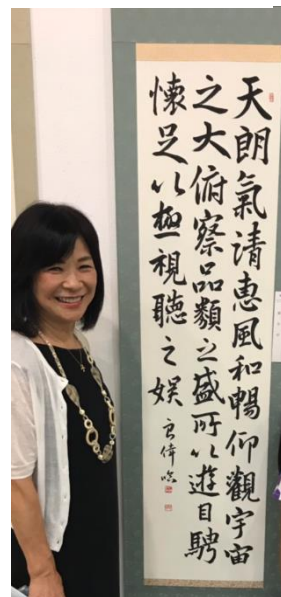 天朗氣請惠風和暢仰觀宇宙
之大俯察品類之盛所以遊目騁
懷足以極視聽之娱